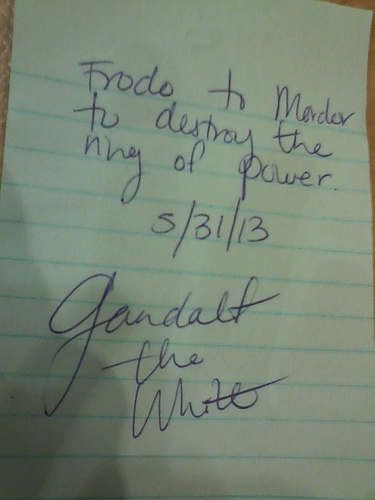 Frodo to Mordor
to destroy the
ring of power.
5/31/13
Gandalf
the
White